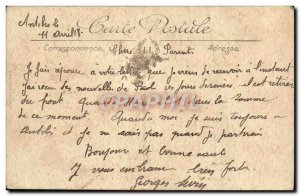 Antibes le
11 Avril 18
Carte Postale
Correspondance Adresse
Chers Parents
Je fais réponse a votre lettre que je viens de recevoir à l'instant
j'ai reçu des nouvelle de Paul ces jours derniers, il est
du front dans la Somme
de ce moment. Quand a moi je suis toujours a
Antibes, et je ne sais pas quand je partirais
Bonjour et bonne santé
Je vous embrasse bien fort
Georges